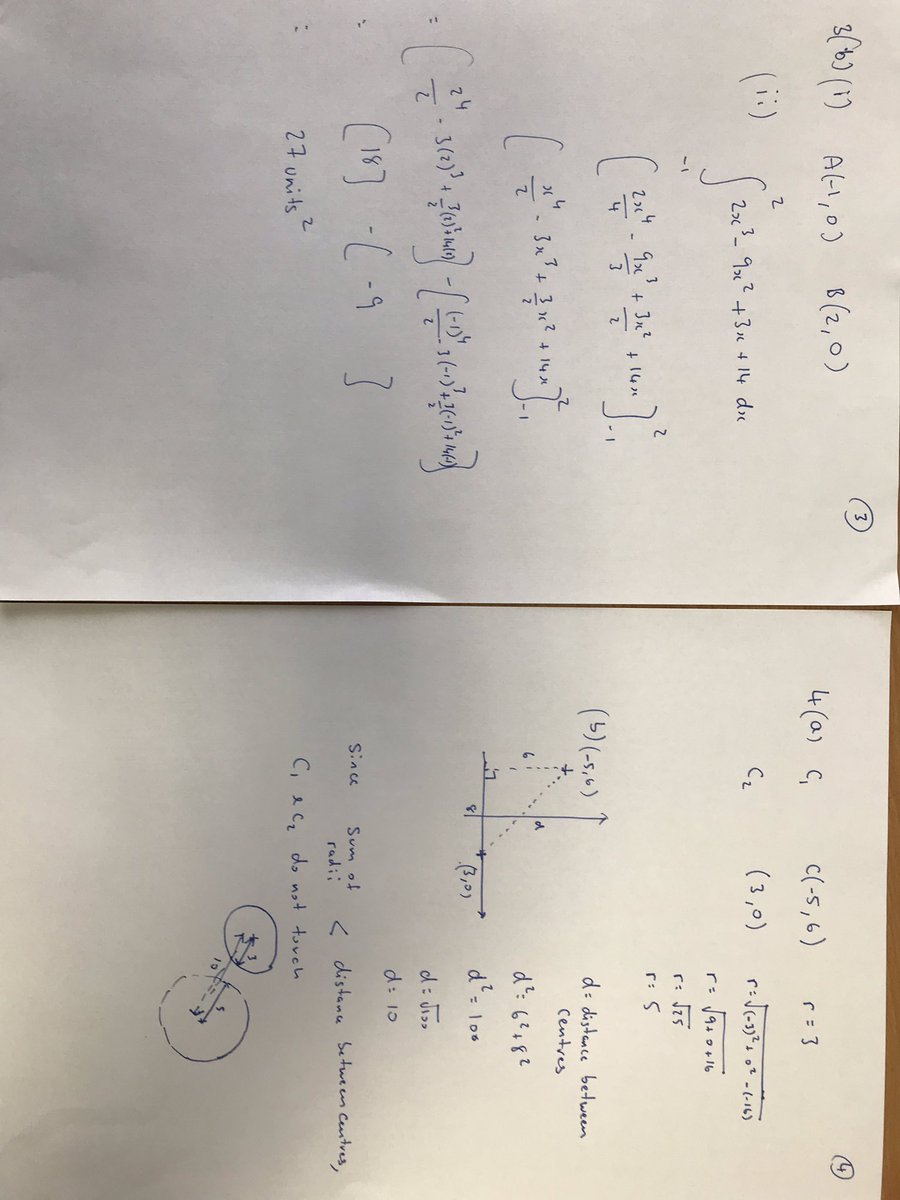 3(b)(i) A(-1,0) B(2,0)
③
(ii) ∫₋₁² 2x³ - 9x² + 3x + 14 dx
[2x⁴/4 - 9x³/3 + 3x²/2 + 14x]₋₁²
[x⁴/2 - 3x³ + 3/2 x² + 14x]₋₁²
= [2⁴/2 - 3(2)³ + 3/2(2)² + 14(2)] - [(-1)⁴/2 - 3(-1)³ + 3/2(-1)² + 14(-1)]
= [18] - [-9]
= 27 units²
4(a) C₁ C(-5,6) r = 3
④
C₂ (3,0) r = √((-3)² + 0² - (-16))
r = √(9 + 0 + 16)
r = √25
r = 5
(b) (-5,6)
6
d
8
(3,0)
d = distance between
centres
d² = 6² + 8²
d² = 100
d = √100
d = 10
Since sum of radii < distance between centres,
C₁ & C₂ do not touch
3
10
5